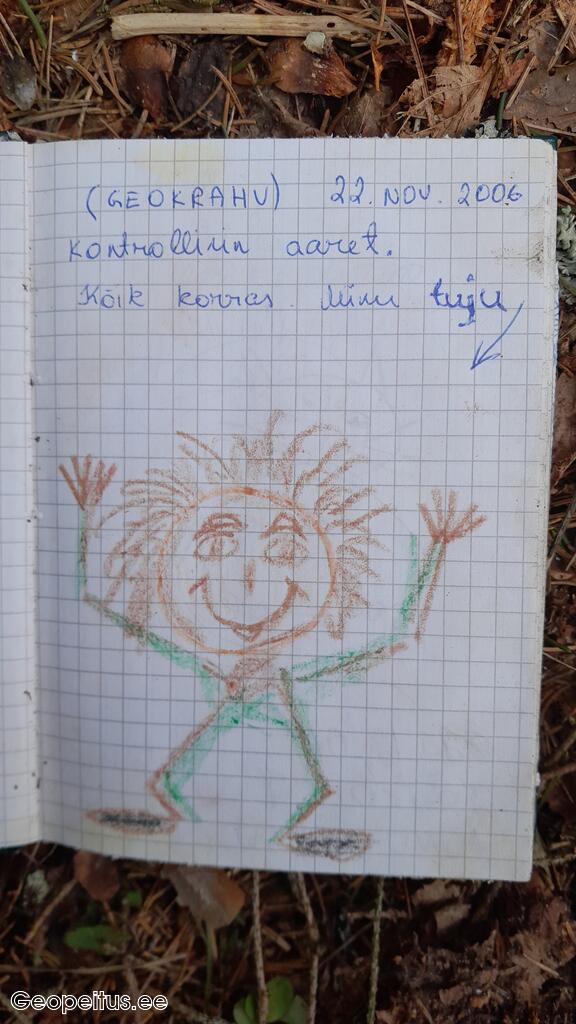 (GEOKRAHV) 22. NOV. 2006
Kontrollisin aaret.
Kõik korras. Minu tuju
Geopeitus.ee